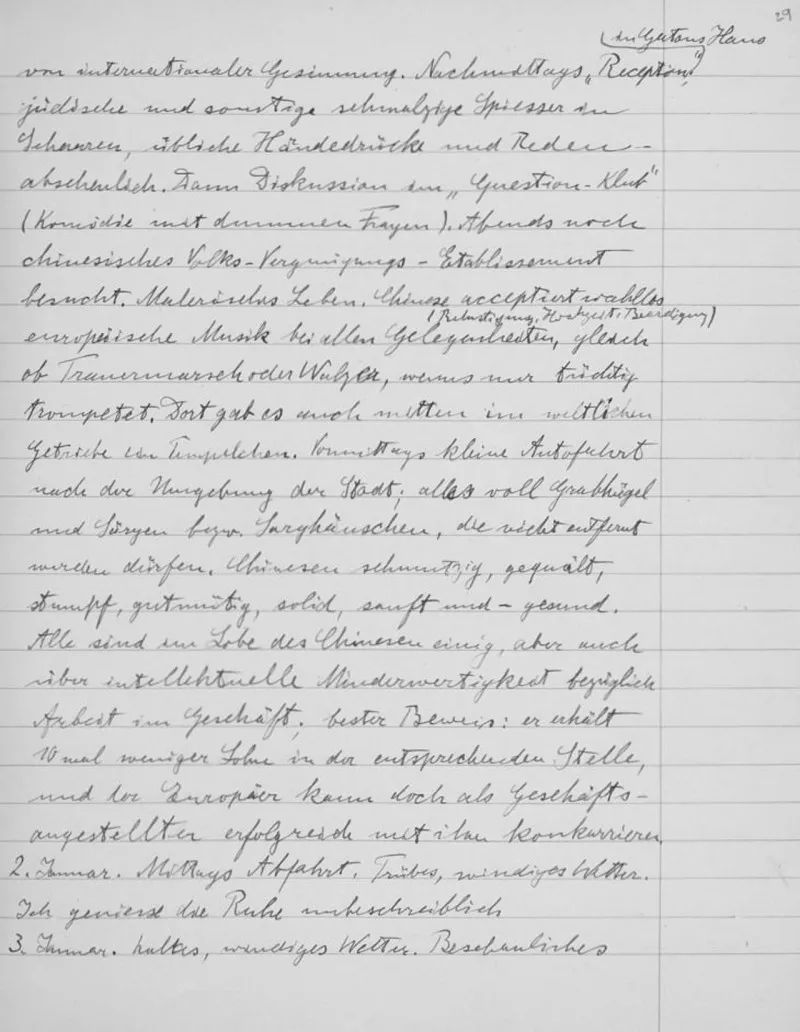 29
in Gattons Haus
von internationaler Gesinnung. Nachmittags „Reception“
jüdische und sonstige schmalzige Spiesser in
Scharen, übliche Händedrücke und Reden –
abscheulich. Dann Diskussion im „Question-Klub“
(Komödie mit dummen Fragen). Abends noch
chinesisches Volks-Vergnügungs-Etablissement
besucht. Malerisches Leben. Chinese acceptiert wahllos
(Belustigung, Hochzeit, Beerdigung)
europäische Musik bei allen Gelegenheiten, gleich
ob Trauermarsch oder Walzer, wenns nur tüchtig
trompetet. Dort gab es auch mitten im weltlichen
Getriebe ein Tempelchen. Vormittags kleine Autofahrt
nach der Umgebung der Stadt; alles voll Grabhügel
und Särgen bezw. Sarghäuschen, die nicht entfernt
werden dürfen. Chinesen schmutzig, gequält,
stumpf, gutmütig, solid, sanft und – gesund.
Alle sind im Lobe des Chinesen einig, aber auch
über intellektuelle Minderwertigkeit bezüglich
Arbeit im Geschäft; bester Beweis: er erhält
10 mal weniger Lohn in der entsprechenden Stelle,
und der Europäer kann doch als Geschäfts-
angestellter erfolgreich mit ihm konkurrieren.
2. Januar. Mittags Abfahrt. Trübes, windiges Wetter.
Ich geniesse die Ruhe unbeschreiblich
3. Januar. kaltes, windiges Wetter. Beschauliches